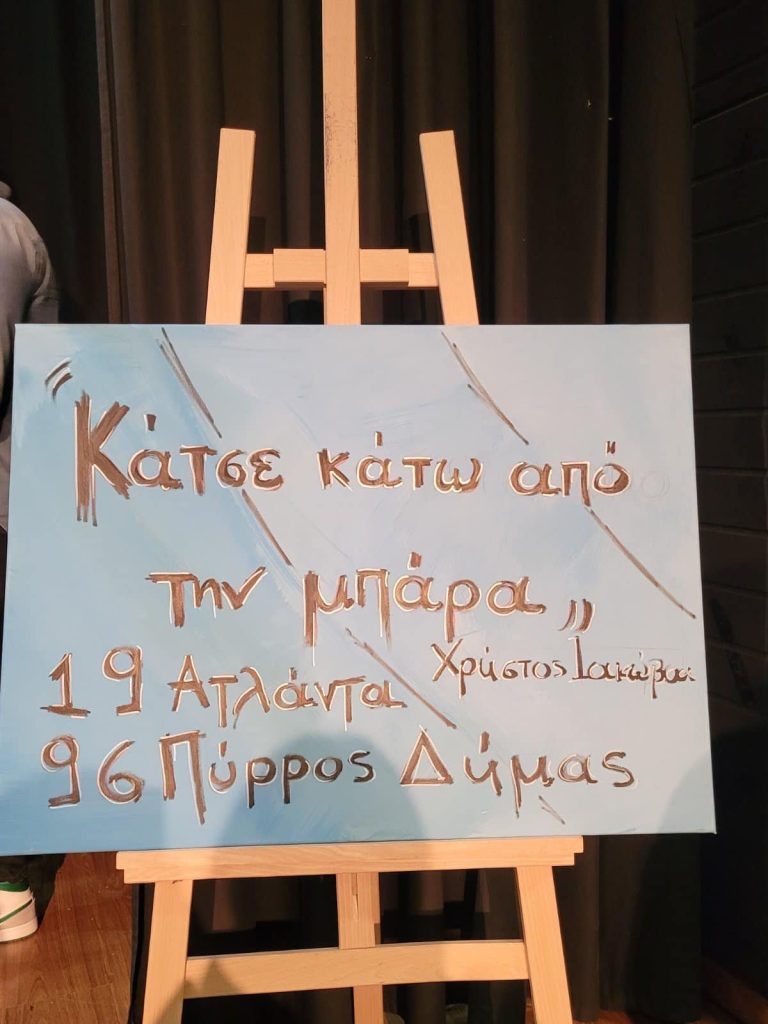 "Κάτσε κάτω από
την μπάρα„
Χρήστος Ιακώβου
19 Ατλάντα
96 Πύρρος Δήμας